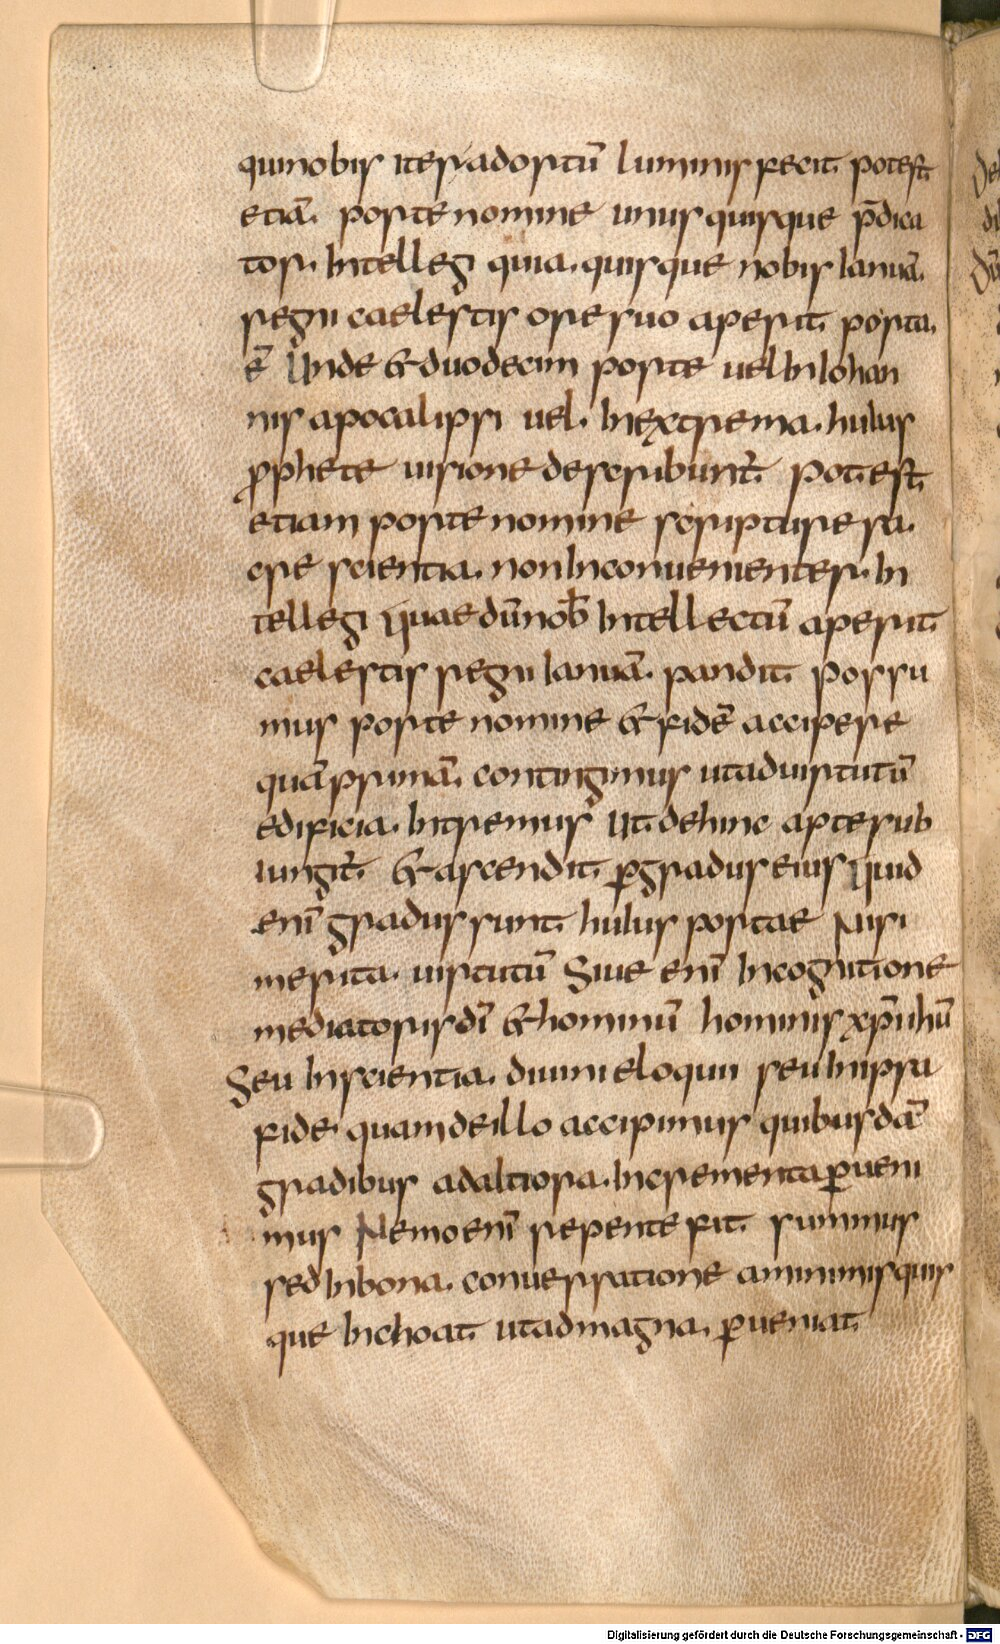 qui nobis iter ad ortū luminis fecit. potest
etiā. porte nomine unus quisque p̄dica
tor. Intellegi quia. quisque nobis Ianuā.
regni caelestis ore suo aperit. porta.
ē Unde & duodecim porte uel In Iohan
nis apocalipsi uel. In extrema. huius
prophete uisione describunt̄ Potest
etiam porte nomine scripture sa.
cre scientia. non Inconuenienter. In
tellegi Quae dū nob̄ Intellectū aperit
caelestis regni Ianuā. pandit. Possu
mus porte nomine & fidē accipere
quā primā. contingimus ut ad uirtutū
edificia. Intremus Ut dehinc apte sub
iungit̄ & ascendit. ꝑ gradus eius Quid
enī gradus sunt huius portae Nisi
merita. uirtutū Siue enī Incognitione
mediatoris dī & hominū hominis xp̄i ihū
Seu Inscientia. diuini eloquii seu In ipsa
fide quam de illo accipimus quibusdā
gradibus ad altiora. Incrementa ꝑueni
mus Nemo enī repente fit. summus
sed In bona. conuersatione a minimis quis
que Inchoat ut ad magna. ꝑueniat.
Digitalisierung gefördert durch die Deutsche Forschungsgemeinschaft - DFG